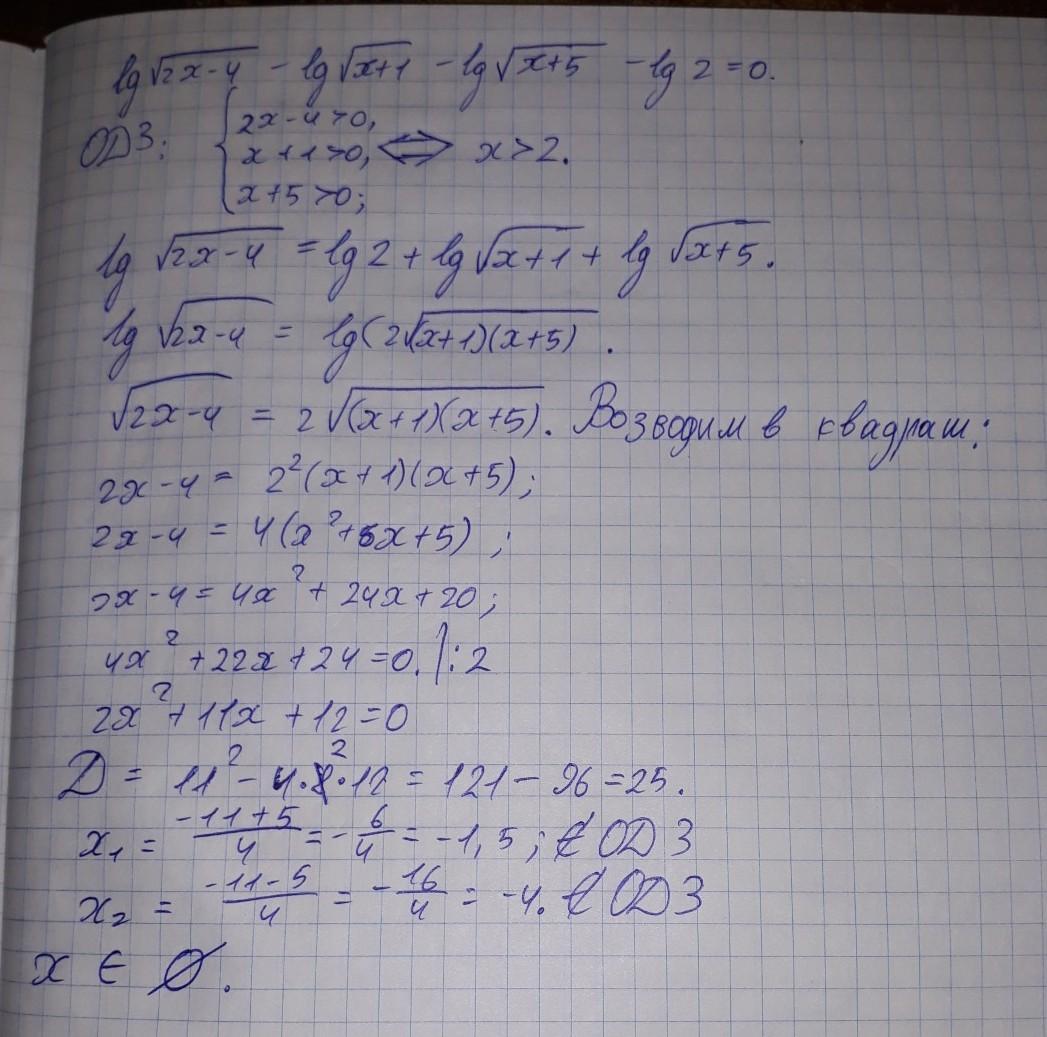 lg√(2x-4) - lg√(x+1) - lg√(x+5) - lg 2 = 0.
ОДЗ: { 2x-4>0, x+1>0, x+5>0; ⟺ x>2.
lg √(2x-4) = lg 2 + lg√(x+1) + lg √(x+5).
lg √(2x-4) = lg(2√((x+1)(x+5)).
√(2x-4) = 2√((x+1)(x+5)). Возводим в квадрат:
2x-4 = 2²(x+1)(x+5);
2x-4 = 4(x²+6x+5);
2x-4 = 4x² + 24x + 20;
4x² + 22x + 24 = 0. |:2
2x² + 11x + 12 = 0
D = 11² - 4·2·12 = 121 - 96 = 25.
x₁ = (-11+5)/4 = -6/4 = -1,5; ∉ ОДЗ
x₂ = (-11-5)/4 = -16/4 = -4. ∉ ОДЗ
x ∈ ∅.